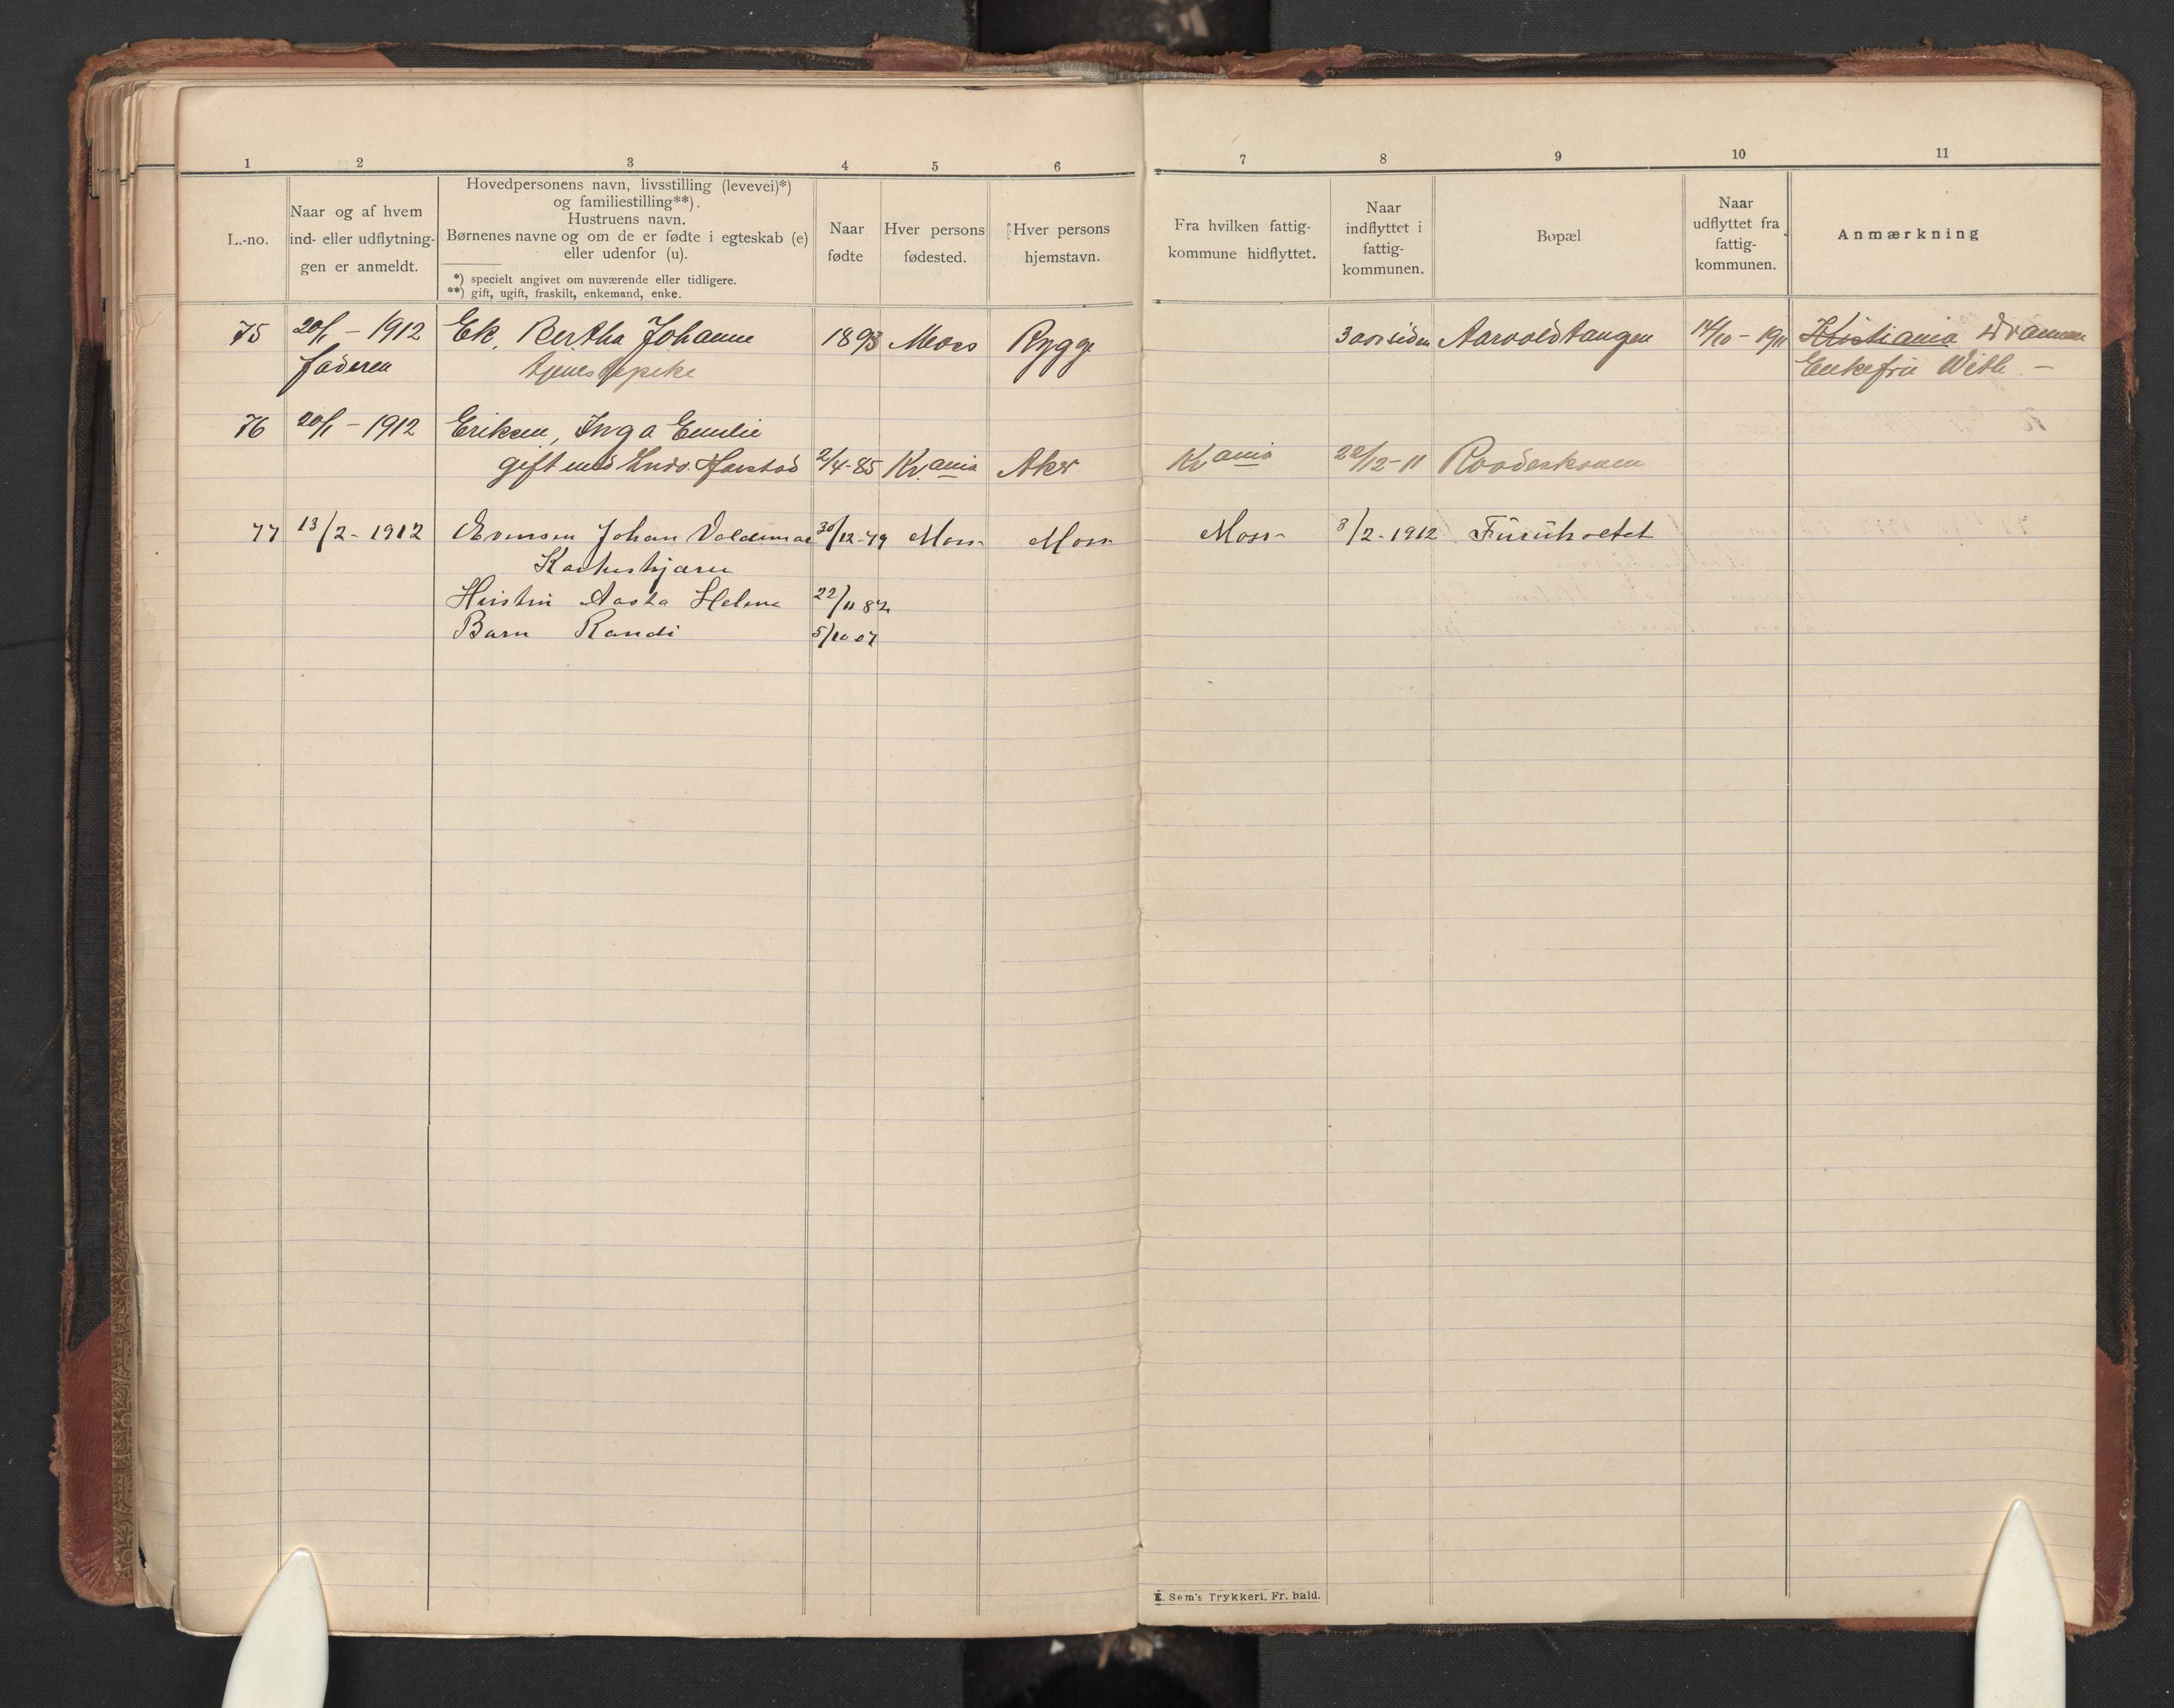 1 2 3 4 5 6 7 8 9 10 11
L.-no.
Naar og af hvem
ind- eller udflytnin-
gen er anmeldt.
Hovedpersonens navn, livsstilling (levevei)*)
og familiestilling**).
Hustruens navn.
Børnenes navne og om de er fødte i egteskab (e)
eller udenfor (u).
*) specielt angivet om nuværende eller tidligere.
**) gift, ugift, fraskilt, enkemand, enke.
Naar
fødte
Hver persons
fødested.
Hver persons
hjemstavn.
Fra hvilken fattig-
kommune hidflyttet.
Naar
indflyttet i
fattig-
kommunen.
Bopæl
Naar
udflyttet fra
fattig-
kommunen.
Anmærkning
75 20/1 - 1912 Ek, Bertha Johanne 1893 Moss Rygge 3 aar siden Aarvoldtangen 14/10 - 1911 Kristiania Drammen
faderen tjenestepike Enkefru With -
76 20/1 - 1912 Eriksen, Inga Emilie
gift med Harstad 2/4-85 Kr.ania Aker Krania 22/12-11
77 13/2 - 1912 Evensen Johan Valdemar 30/12-79 Moss Moss Moss 3/2-1912 Furuholtet
Hustru Aasta Helene 22/11 82
Barn Randi 5/10 07
E. Sem's Trykkeri, Fr. hald.